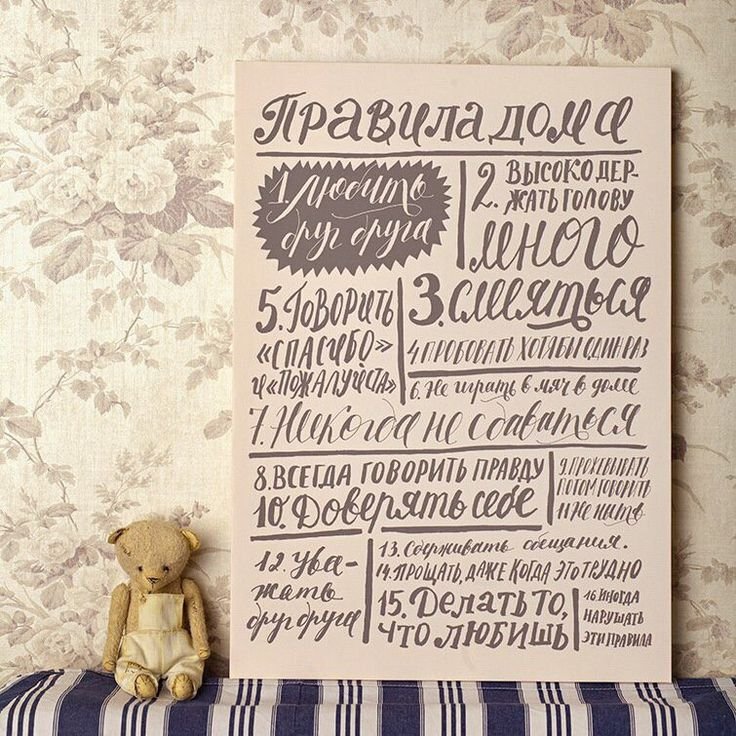 Правила дома
1. Любить
друг друга
2. ВЫСОКО ДЕР-
ЖАТЬ ГОЛОВУ
много
3. смеяться
4 ПРОБОВАТЬ ХОТЯ БЫ ОДИН РАЗ
5. ГОВОРИТЬ
«СПАСИБО»
и «ПОЖАЛУЙСТА»
6. Не играть в мяч в доме
7. Никогда не сдаваться
8. ВСЕГДА ГОВОРИТЬ ПРАВДУ
9. ПРОЖЕВЫВАТЬ
ПОТОМ ГОВОРИТЬ
и не ныть
10. Доверять себе
12. Ува-
жать
друг друга
13. Сдерживать обещания.
14. ПРОЩАТЬ, ДАЖЕ КОГДА ЭТО ТРУДНО
15. Делать то,
что ЛЮБИШЬ
16. ИНОГДА
НАРУШАТЬ
ЭТИ ПРАВИЛА